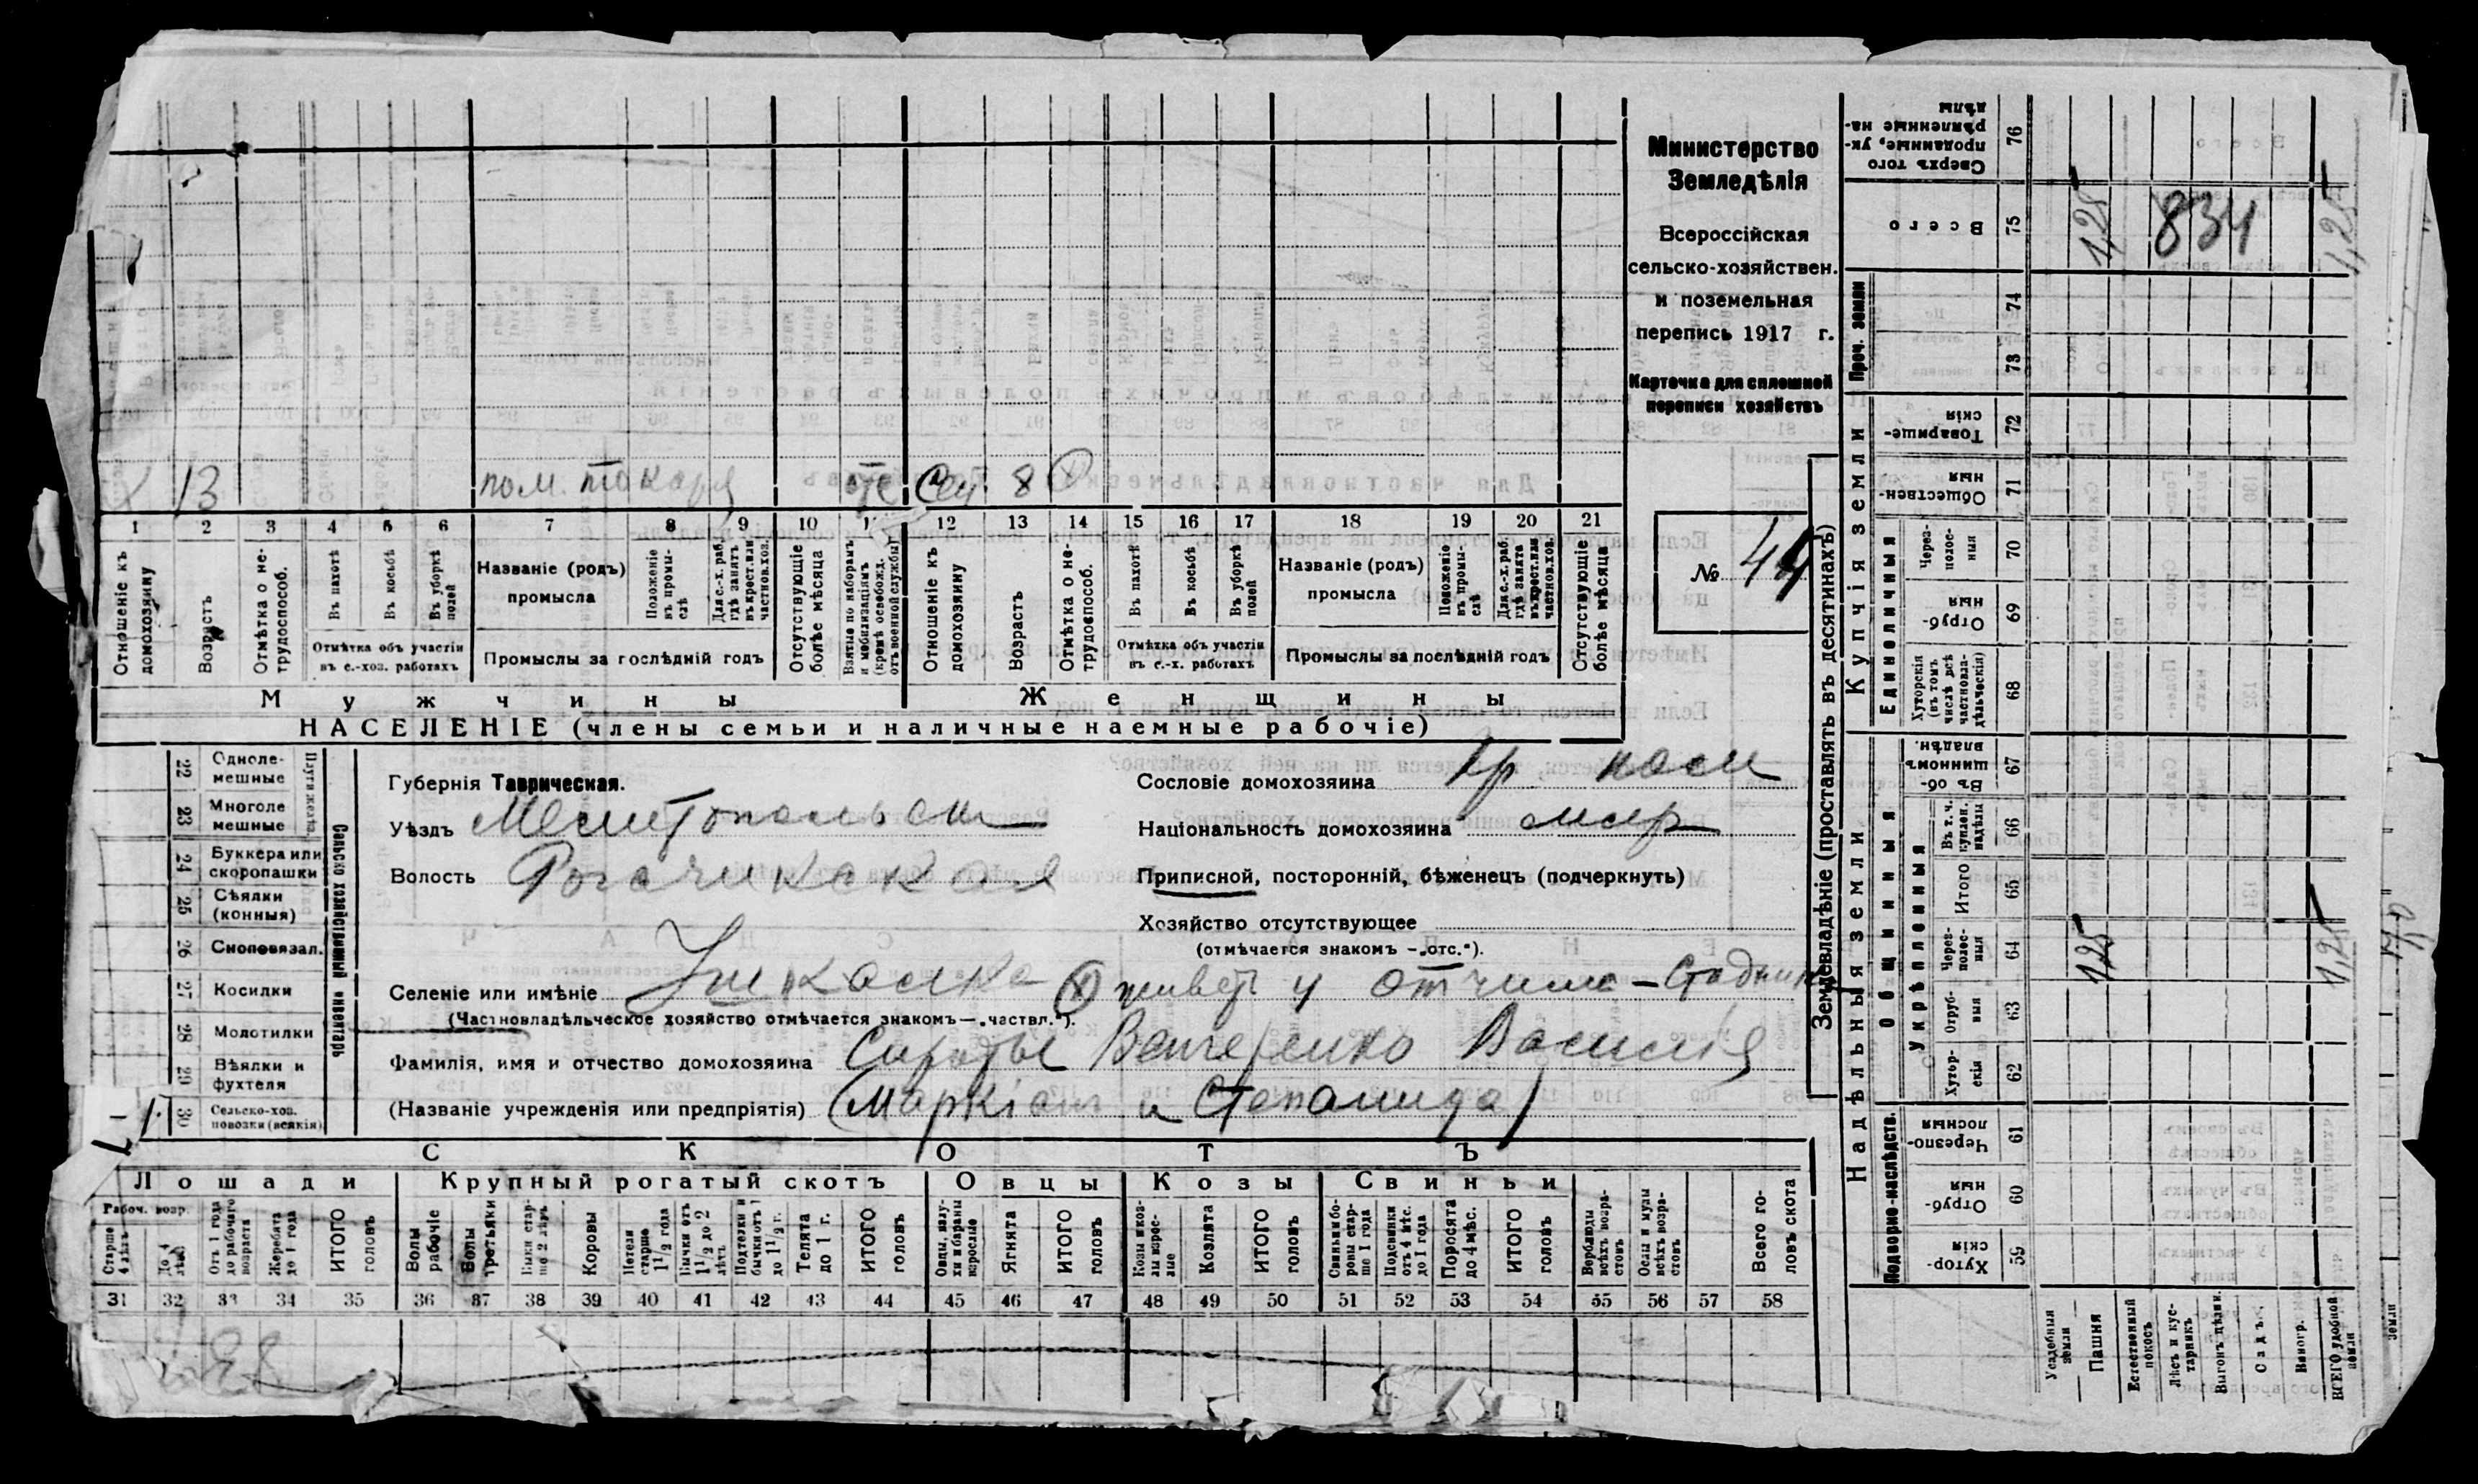 Х 13 пом. токаря сест. 8
1 2 3 4 5 6 7 8 9 10 11 12 13 14 15 16 17 18 19 20 21
Отношеніе къ домохозяину
Возрастъ
Отмѣтка о нетрудоспособ.
Въ пахотѣ
Въ косьбѣ
Въ уборкѣ полей
Отмѣтка объ участіи въ с.-хоз. работахъ
Названіе (родъ) промысла
Положеніе въ промыслѣ
Для с.-х. раб. гдѣ занятъ въ крест. или частн. хоз.
Промыслы за послѣдній годъ
Отсутствующіе болѣе мѣсяца
Взятые по наборамъ и мобилизаціямъ (кромѣ освобожд. отъ военной службы)
Отношеніе къ домохозяину
Возрастъ
Отмѣтка о нетрудоспособ.
Въ пахотѣ
Въ косьбѣ
Въ уборкѣ полей
Отмѣтка объ участіи въ с.-х. работахъ
Названіе (родъ) промысла
Положеніе въ промыслѣ
Для с.-х. раб. гдѣ занята въ крест. или частнов. хоз.
Промыслы за послѣдній годъ
Отсутствующіе болѣе мѣсяца
Мужчины
Женщины
НАСЕЛЕНІЕ (члены семьи и наличные наемные рабочіе)
Министерство
Земледѣлія
Всероссійская
сельско-хозяйствен.
и поземельная
перепись 1917 г.
Карточка для сплошной
переписи хозяйствъ
№ 44
22 Однолемешные
23 Многолемешные
24 Буккера или скоропашки
25 Сѣялки (конныя)
26 Сноповязал.
27 Косилки
28 Молотилки
29 Вѣялки и фухтеля
30 Сельско-хоз. повозки (всякія)
Сельско хозяйственный инвентарь
Губернія Таврическая.
Уѣздъ Мелитопольский
Волость Рогачикская
Селеніе или имѣніе Ушкалка живет у отчима – Стадника
(Частновладѣльческое хозяйство отмѣчается знакомъ — „частвл.“).
Фамилія, имя и отчество домохозяина Сироты Вечеренко Василия
(Названіе учрежденія или предпріятія) (Маркіан и Степанида)
Сословіе домохозяина кр
Національность домохозяина млр
Приписной, посторонній, бѣженецъ (подчеркнуть)
Хозяйство отсутствующее
(отмѣчается знакомъ — „отс.“).
СКОТЪ
Лошади
Крупный рогатый скотъ
Овцы
Козы
Свиньи
Рабоч. возр.
Старше 4 лѣтъ
До 4 лѣтъ
Отъ 1 года до рабочаго возраста
Жеребята до 1 года
ИТОГО головъ
Волы рабочіе
Волы третьяки
Быки старше 2 лѣтъ
Коровы
Нетели старше 1 1/2 года
Бычки отъ 1 1/2 до 2 лѣтъ
Подтелки и бычки отъ 1 до 1 1/2 г.
Телята до 1 г.
ИТОГО головъ
Овцы, валухи и бараны взрослые
Ягнята
ИТОГО головъ
Козы и козлы взрослые
Козлята
ИТОГО головъ
Свиньи и боровы старше 1 года
Подсвинки отъ 4 мѣс. до 1 года
Поросята до 4 мѣс.
ИТОГО головъ
Верблюды всѣхъ возрастовъ
Ослы и мулы всѣхъ возрастовъ
Всего головъ скота
31 32 33 34 35 36 37 38 39 40 41 42 43 44 45 46 47 48 49 50 51 52 53 54 55 56 57 58
Землевладѣніе (проставлять въ десятинахъ)
Надѣльныя земли
Купчія земли
Проч. земли
Подворно-наслѣдств.
Общинныя
Укрѣпленныя
Единоличныя
76 Сверхъ того проданные, укрѣпленные надѣлы
75 Всего 1,25 834 1,25
74
73
72 Товарищескія
71 Общественныя
70 Черезполосныя
69 Отрубныя
68 Хуторскія (въ томъ числѣ всѣ частновладѣльческія)
67 Въ общинномъ владѣн.
66 Въ т. ч. куплен. надѣлы
65 Итого
64 Черезполосныя 1,25 1,25
63 Отрубныя
62 Хуторскія
61 Черезполосныя
60 Отрубныя
59 Хуторскія
Усадебныя земли
Пашня
Естественный покосъ
Лѣсъ и кустарникъ
Выгонъ
Садъ
Виногр.
ВСЕГО удобной земли